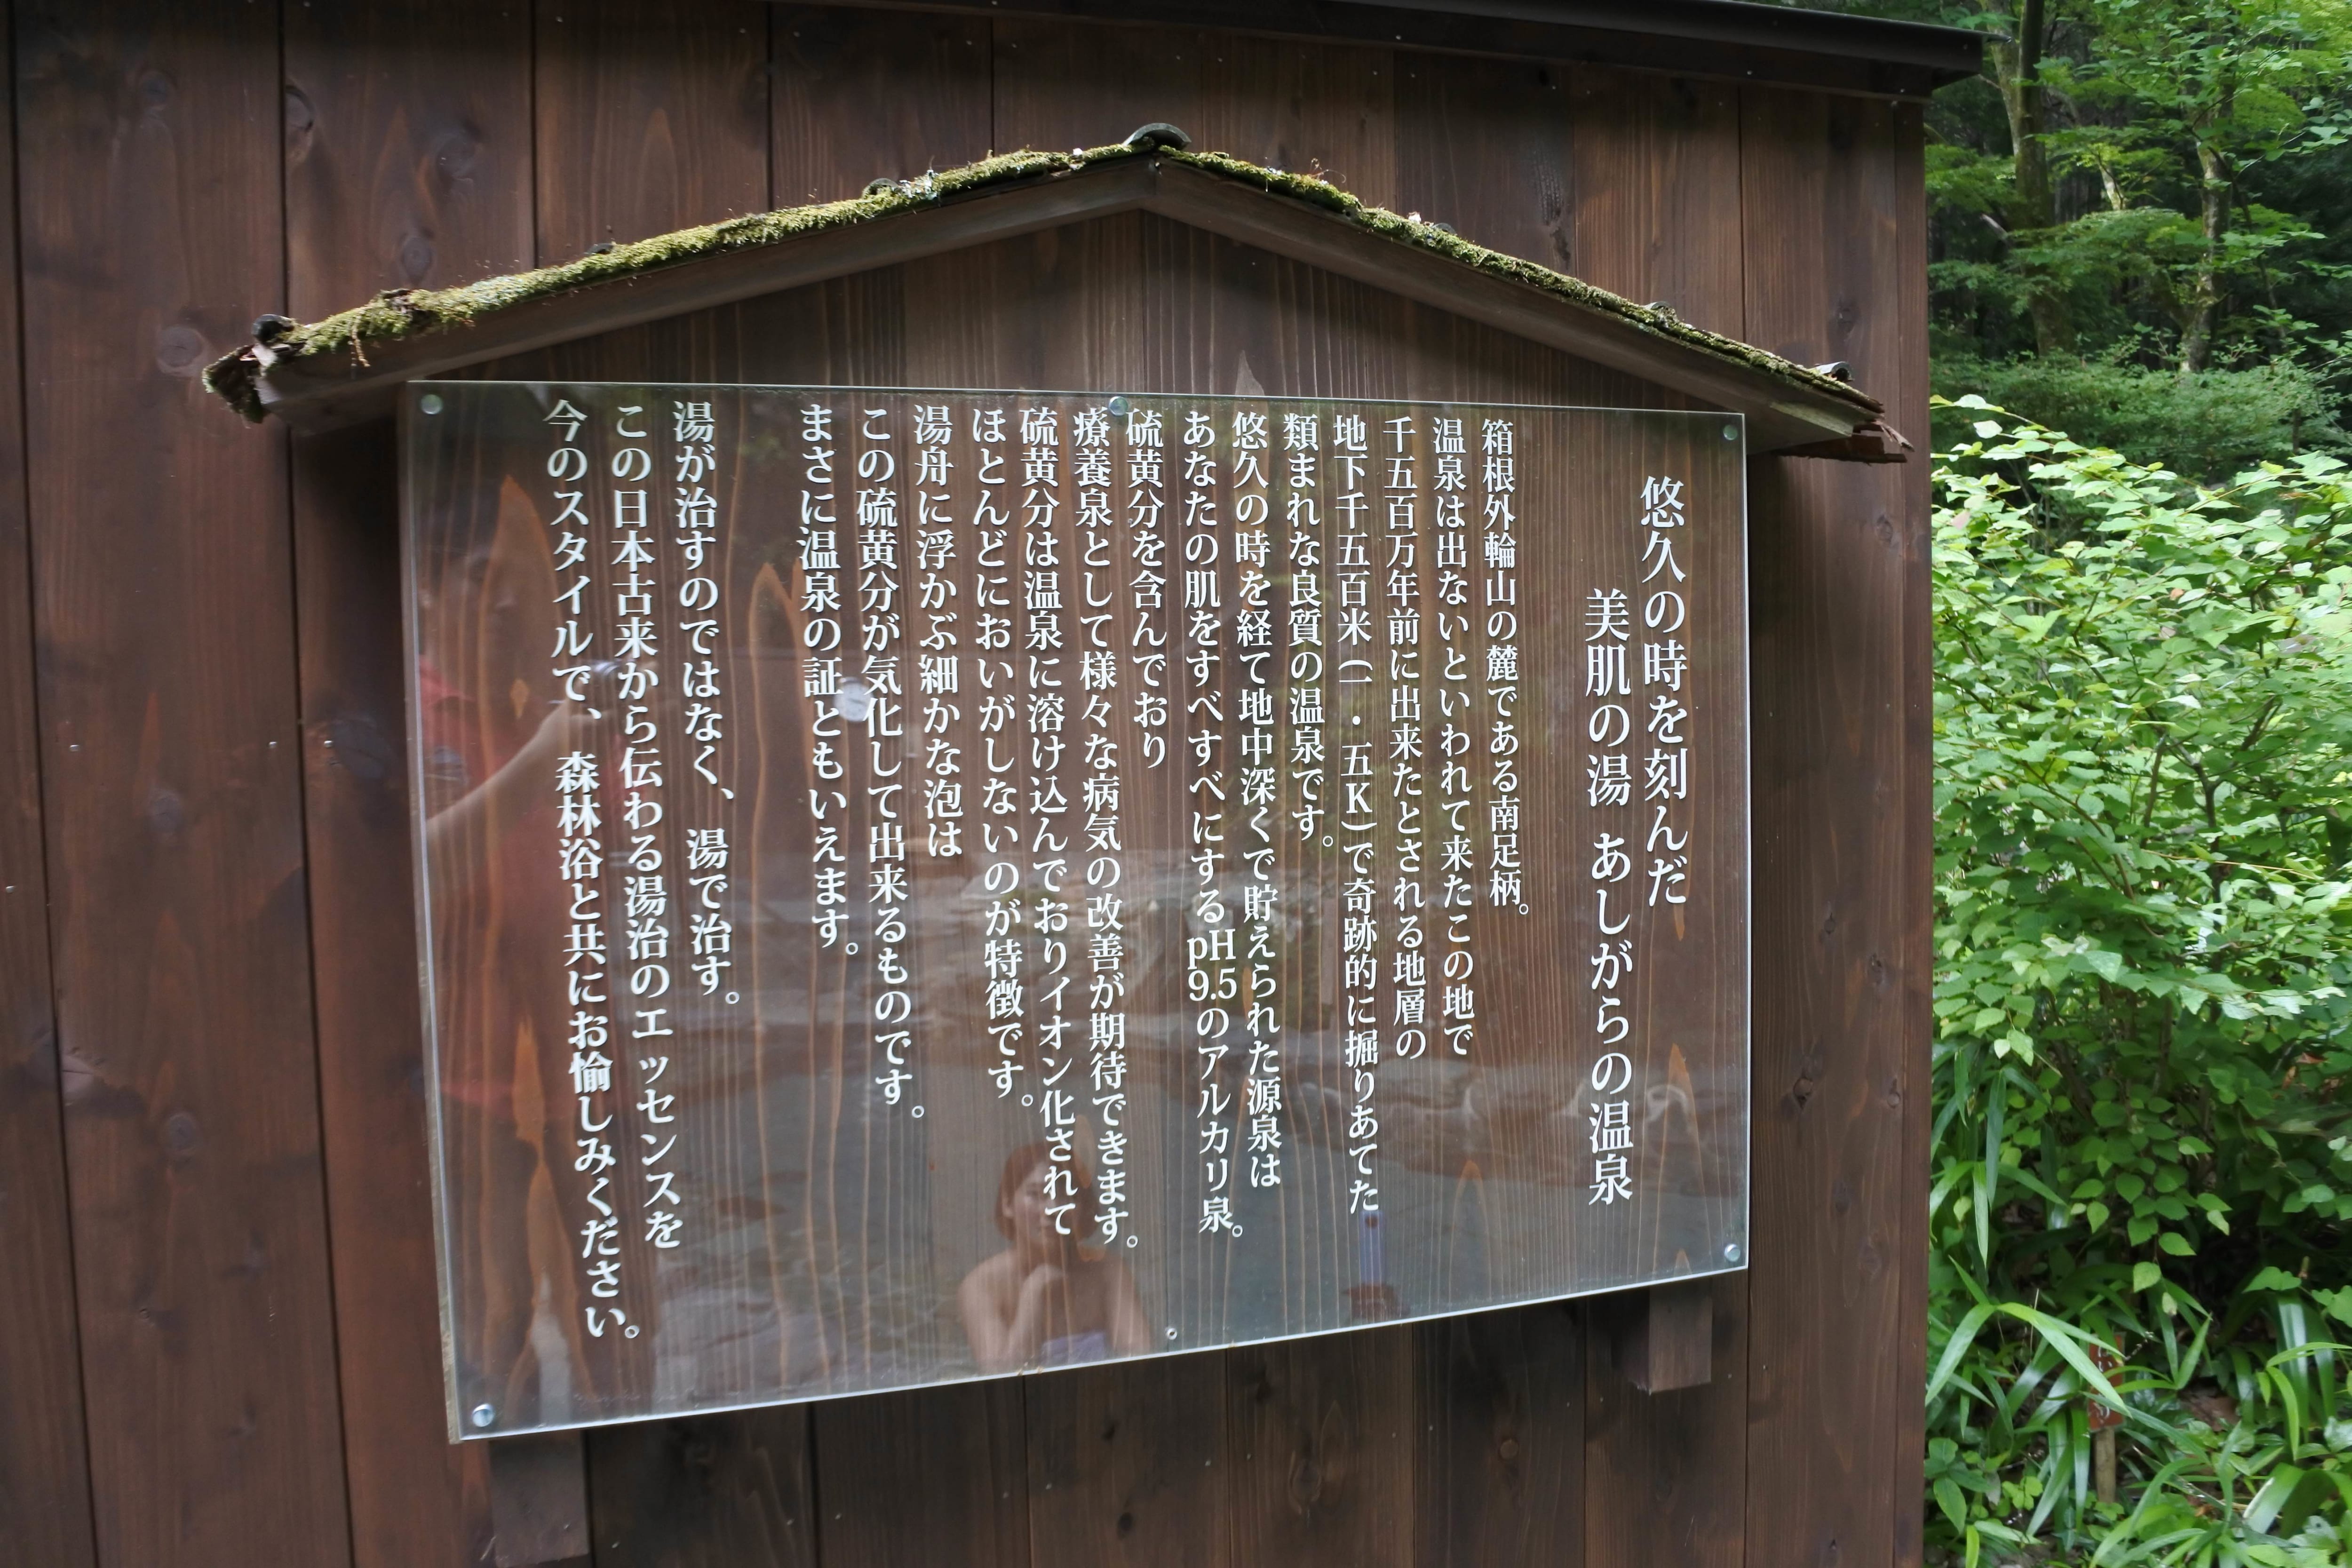 悠久の時を刻んだ
美肌の湯 あしがらの温泉
箱根外輪山の麓である南足柄。
温泉は出ないといわれて来たこの地で
千五百万年前に出来たとされる地層の
地下千五百米(一・五K)で奇跡的に掘りあてた
類まれな良質の温泉です。
悠久の時を経て地中深くで貯えられた源泉は
あなたの肌をすべすべにするpH9.5のアルカリ泉。
硫黄分を含んでおり
療養泉として様々な病気の改善が期待できます。
硫黄分は温泉に溶け込んでおりイオン化されて
ほとんどにおいがしないのが特徴です。
湯舟に浮かぶ細かな泡は
この硫黄分が気化して出来るものです。
まさに温泉の証ともいえます。
湯が治すのではなく、湯で治す。
この日本古来から伝わる湯治のエッセンスを
今のスタイルで、森林浴と共にお愉しみください。